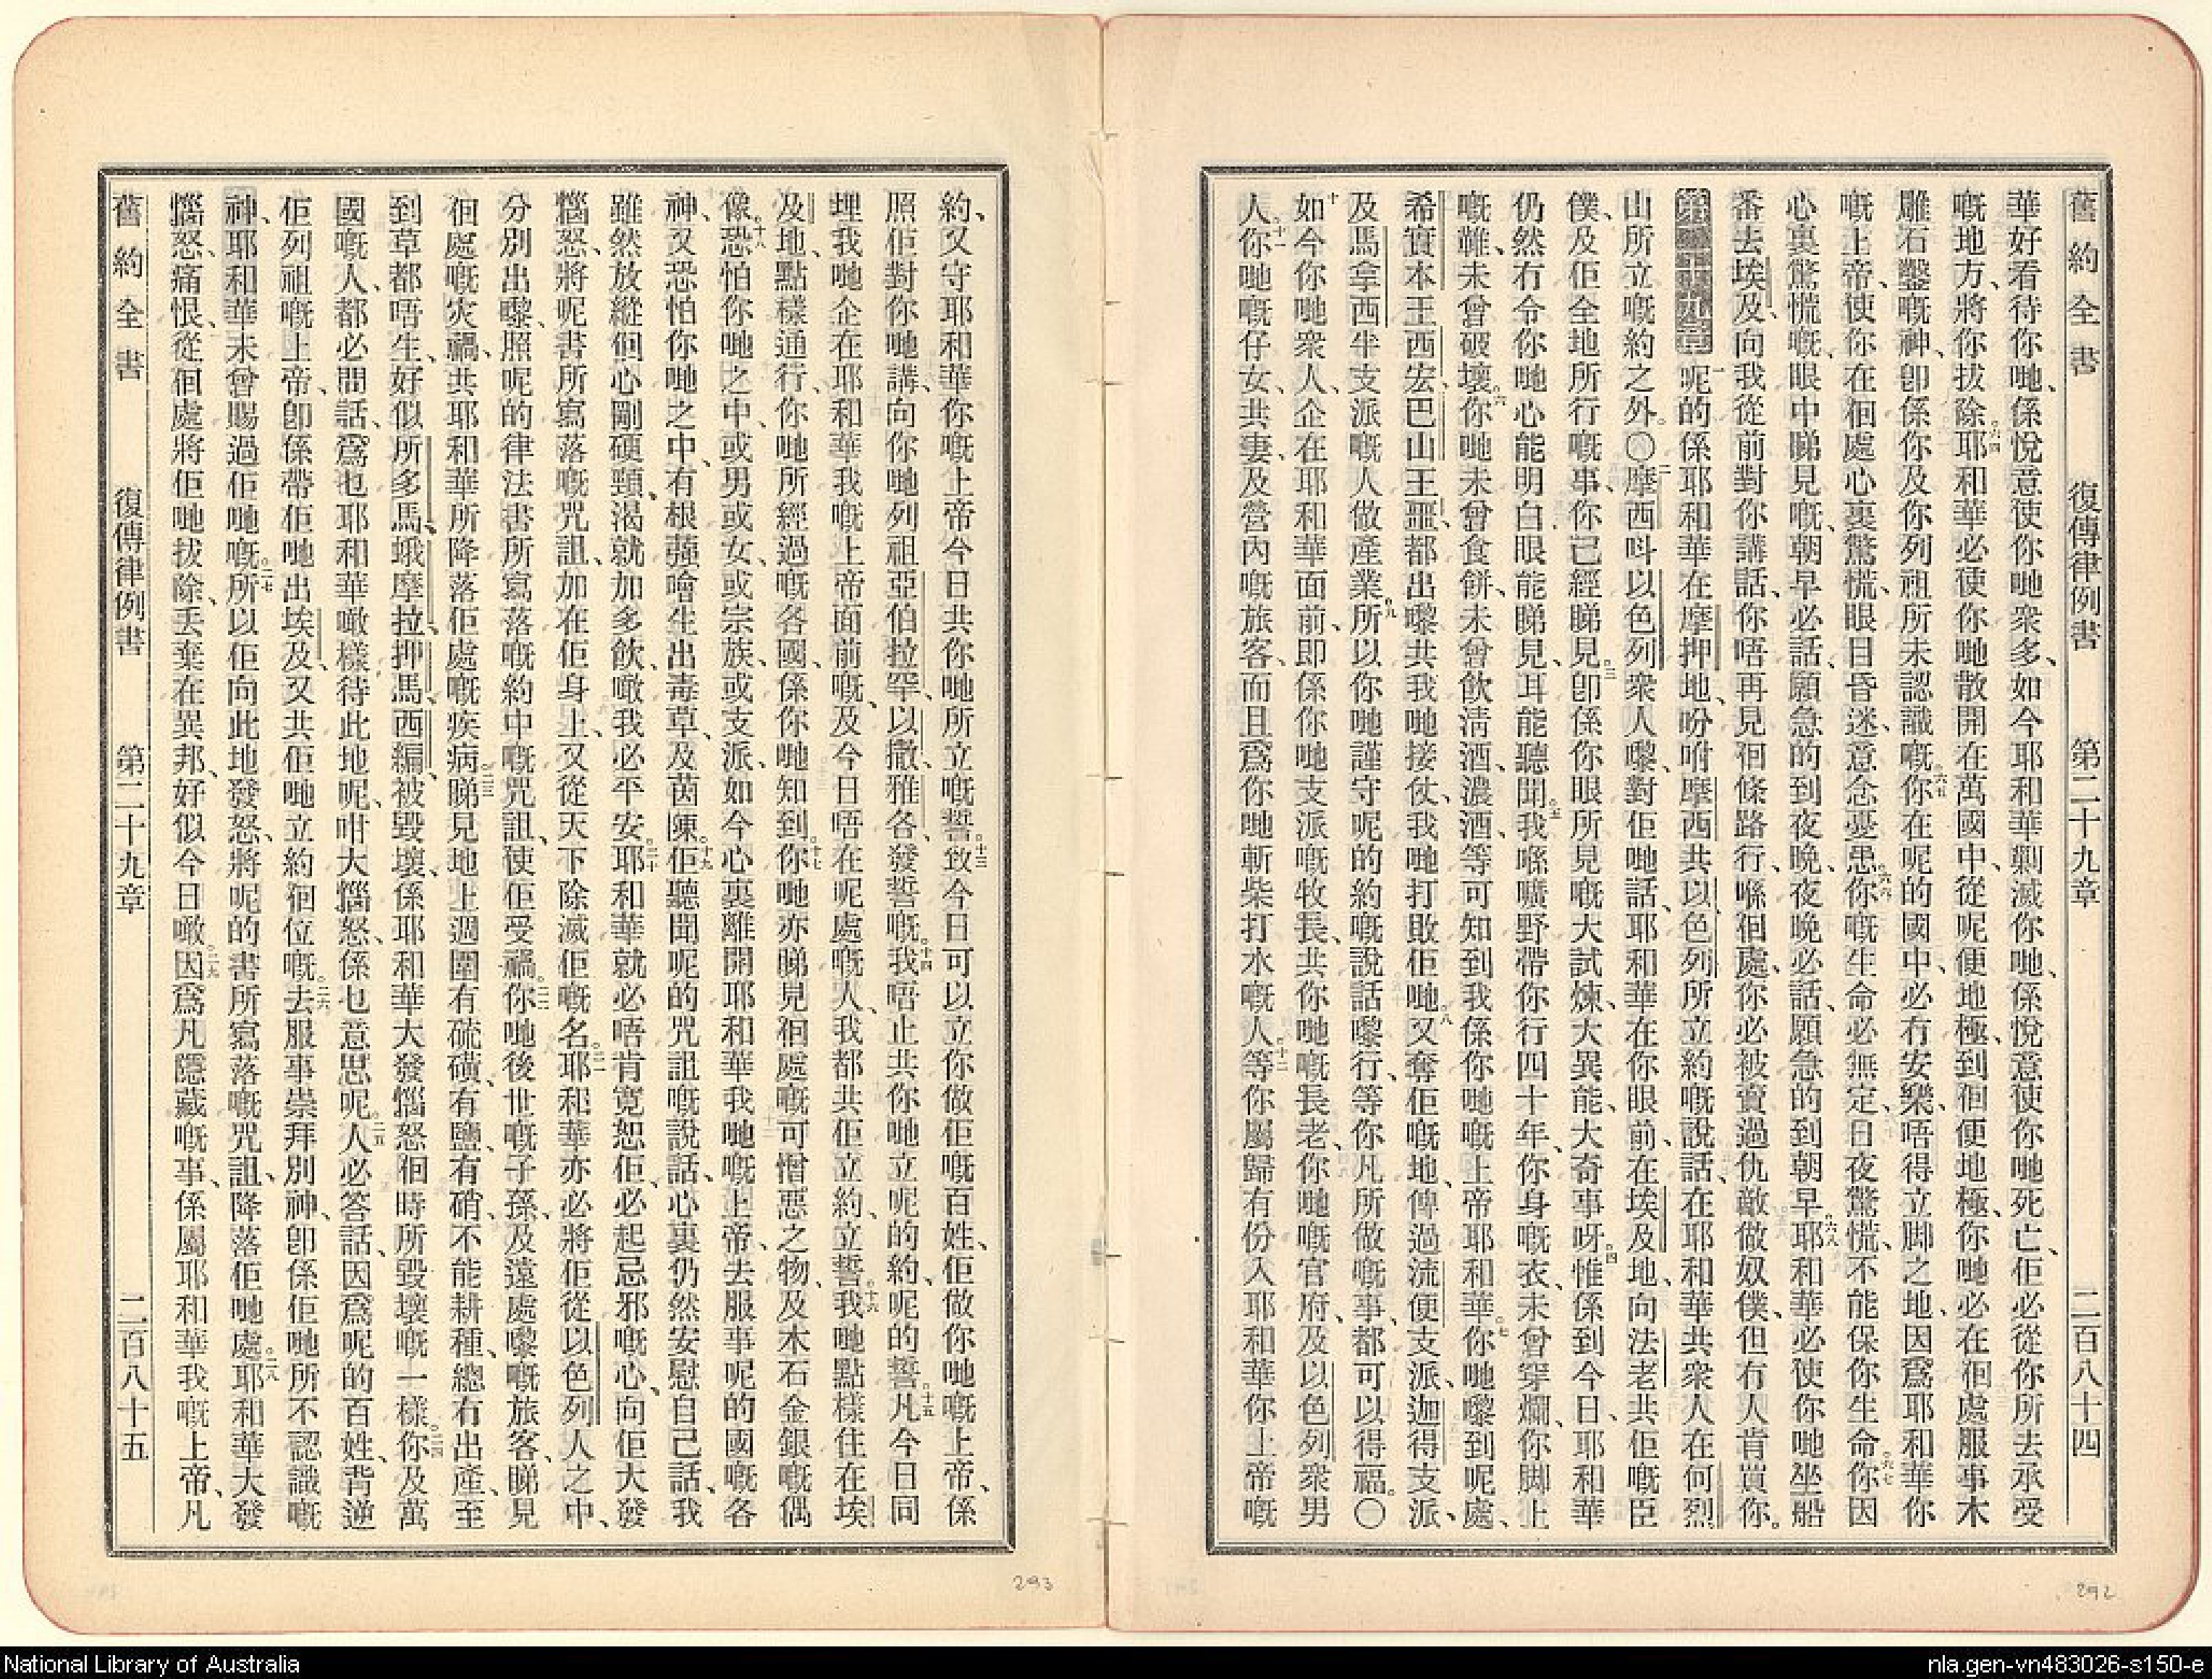 舊約全書 復傳律例書 第二十九章 二百八十四
華好看待你哋、係悅意使你哋衆多、如今耶和華剿滅你哋、係悅意使你哋死亡、佢必從你所去承受
嘅地方、將你拔除。六四耶和華必使你哋散開在萬國中、從呢便地極、到佪便地極、你哋必在佪處服事木
雕石鑿嘅神、卽係你及你列祖所未認識嘅。六五你在呢的國中、必冇安樂、唔得立脚之地、因爲耶和華你
嘅上帝、使你在佪處心裏驚慌、眼目昏迷、意念憂患。六六你嘅生命必無定、日夜驚慌、不能保你生命。六七你因
心裏驚慌嘅、眼中睇見嘅、朝早必話、願急的到夜晚、夜晚必話、願急的到朝早。六八耶和華必使你哋坐船
番去埃及、向我從前對你講話、你唔再見佪條路行、喺佪處、你必被賣過仇敵做奴僕、但冇人肯買你。
第二十九章 一呢的係耶和華在摩押地、吩咐摩西共以色列所立約嘅說話、在耶和華共衆人在何烈
山所立嘅約之外。〇二摩西呌以色列衆人嚟、對佢哋話、耶和華在你眼前、在埃及地、向法老共佢嘅臣
僕、及佢全地所行嘅事、你已經睇見。三卽係你眼所見嘅大試煉、大異能、大奇事呀。四惟係到今日、耶和華
仍然冇令你哋心能明白、眼能睇見、耳能聽聞。五我喺曠野帶你行四十年、你身嘅衣、未曾穿爛、你脚上
嘅鞋、未曾破壞。六你哋未曾食餅、未曾飲淸酒、濃酒、等可知到我係你哋嘅上帝耶和華。七你哋嚟到呢處、
希實本王西宏、巴山王噩、都出嚟共我哋接仗、我哋打敗佢哋。八又奪佢嘅地、傳過流便支派、迦得支派、
及馬拿西半支派嘅人做產業。九所以你哋謹守呢的約嘅說話嚟行、等你凡所做嘅事、都可以得福。〇
十如今你哋衆人、企在耶和華面前、即係你哋支派嘅牧長、共你哋嘅長老、你哋嘅官府、及以色列衆男
人。十一你哋嘅仔女、共妻、及營內嘅旅客、而且爲你哋斬柴打水嘅人。十二等你屬歸有份入耶和華你上帝嘅
約、又守耶和華你嘅上帝今日共你哋所立嘅誓。十三致今日可以立你做佢嘅百姓、佢做你哋嘅上帝、係
照佢對你哋講、向你哋列祖亞伯拉罕、以撒、雅各、發誓嘅。十四我唔止共你哋立呢的約、呢的誓。十五凡今日同
埋我哋企在耶和華我嘅上帝面前嘅、及今日唔在呢處嘅人、我都共佢立約、立誓。十六我哋點樣住在埃
及地、點樣通行、你哋所經過嘅各國、係你哋知到。十七你哋亦睇見佪處嘅可憎惡之物、及木石金銀嘅偶
像。十八恐怕你哋之中、或男或女、或宗族、或支派、如今心裏離開耶和華我哋嘅上帝、去服事呢的國嘅各
神、又恐怕你哋之中、有根薃噲生出毒草、及茵陳。十九佢聽聞呢的咒詛嘅說話、心裏仍然安慰自己話、我
雖然放縱佪心剛硬頸、渴就加多飲、噉我必平安。二十耶和華就必唔肯寬恕佢、必起忌邪嘅心、向佢大發
惱怒、將呢書所寫落嘅咒詛、加在佢身上、又從天下除滅佢嘅名。二一耶和華亦必將佢從以色列人之中、
分別出嚟、照呢的律法書所寫落嘅約中嘅咒詛、使佢受禍。二二你哋後世嘅子孫、及遠處嚟嘅旅客、睇見
佪處嘅災禍、共耶和華所降落佢處嘅疾病。二三睇見地上週圍有硫磺、有鹽、有硝、不能耕種、總冇出產、至
到草都唔生、好似所多馬、蛾摩拉、押馬、西編、被毀壞、係耶和華大發惱怒佪時所毀壞嘅一樣。二四你及萬
國嘅人、都必問話、爲乜耶和華噉樣待此地呢、咁大惱怒、係乜意思呢。二五人必答話、因爲呢的百姓、背逆
佢列祖嘅上帝、卽係帶佢哋出埃及、又共佢哋立約佪位嘅。二六去服事崇拜別神、卽係佢哋所不認識嘅
神、耶和華未曾賜過佢哋嘅。二七所以佢向此地發怒、將呢的書所寫落嘅咒詛、降落佢哋處。二八耶和華大發
惱怒、痛恨、從佪處將佢哋拔除、丢棄在異邦、好似今日噉。二九因爲凡隱藏嘅事、係屬耶和華我嘅上帝、凡
舊約全書 復傳律例書 第二十九章 二百八十五
292
293
National Library of Australia
nla.gen-vn483026-s150-e